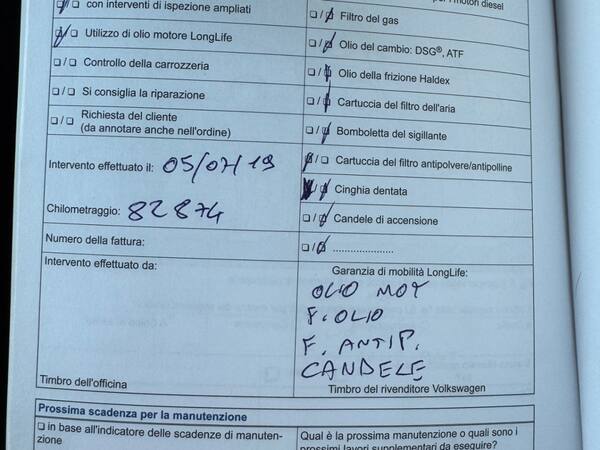 con interventi di ispezione ampliati
❏/❏ Utilizzo di olio motore LongLife
❏/❏ Controllo della carrozzeria
❏/❏ Si consiglia la riparazione
❏/❏ Richiesta del cliente
(da annotare anche nell'ordine)
Intervento effettuato il: 05/07/19
Chilometraggio: 82874
Numero della fattura:
Intervento effettuato da:
Timbro dell'officina
motori diesel
❏/❏ Filtro del gas
❏/❏ Olio del cambio: DSG®, ATF
❏/❏ Olio della frizione Haldex
❏/❏ Cartuccia del filtro dell'aria
❏/❏ Bomboletta del sigillante
❏/❏ Cartuccia del filtro antipolvere/antipolline
❏/❏ Cinghia dentata
❏/❏ Candele di accensione
❏/❏ .....................
Garanzia di mobilità LongLife:
OLIO MOT
F. OLIO
F. ANTIP.
CANDELE
Timbro del rivenditore Volkswagen
Prossima scadenza per la manutenzione
❏ in base all'indicatore delle scadenze di manuten-
zione
Qual è la prossima manutenzione o quali sono i
prossimi lavori supplementari da eseguire?